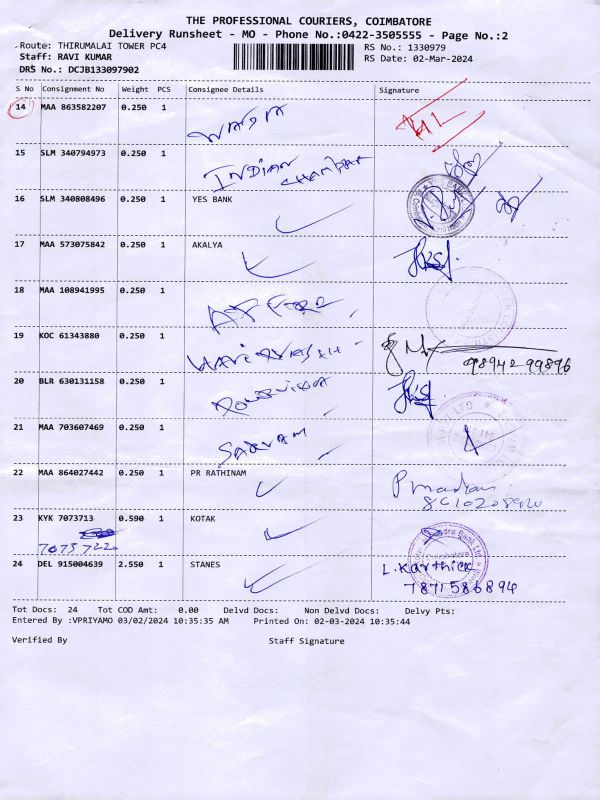 THE PROFESSIONAL COURIERS, COIMBATORE
Delivery Runsheet - MO - Phone No.:0422-3505555 - Page No.:2
Route: THIRUMALAI TOWER PC4 RS No.: 1330979
Staff: RAVI KUMAR RS Date: 02-Mar-2024
DRS No.: DCJB133097902
S No Consignment No Weight PCS Consignee Details Signature
14 MAA 863582207 0.250 1
15 SLM 340794973 0.250 1 INDIAN CHAMBAR
16 SLM 340808496 0.250 1 YES BANK
17 MAA 573075842 0.250 1 AKALYA
18 MAA 108941995 0.250 1
19 KOC 61343880 0.250 1 98942 99896
20 BLR 630131158 0.250 1
21 MAA 703607469 0.250 1
22 MAA 864027442 0.250 1 PR RATHINAM
23 KYK 7073713 0.590 1 KOTAK
7075722
24 DEL 915004639 2.550 1 STANES L.Karthick
7871586894
Tot Docs: 24 Tot COD Amt: 0.00 Delvd Docs: Non Delvd Docs: Delvy Pts:
Entered By :VPRIYAMO 03/02/2024 10:35:35 AM Printed On: 02-03-2024 10:35:44
Verified By Staff Signature